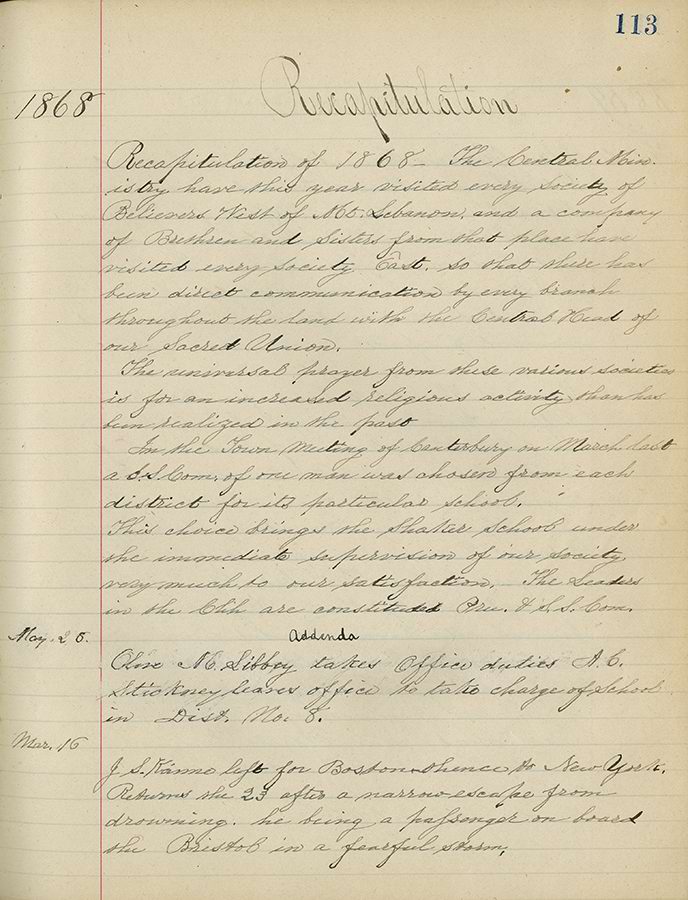 113
1868
Recapitulation
Recapitulation of 1868 - The Central Min-
istry have this year visited every society of
Believers West of Mt. Lebanon, and a company
of Brethren and Sisters from that place have
visited every society East. so that there has
been direct communication by every branch
throughout the land with the Central Head of
our Sacred Union.
The universal prayer from these various societies
is for an increased religious activity than has
been realized in the past
In the Town Meeting of Canterbury on March last
a S.S. Com. of one man was chosen from each
district for its particular school.
This choice brings the Shaker School under
the immediate supervision of our society,
very much to our satisfaction. The Leaders
in the Chh are constituted Pru. & S.S. Com.
Addenda
May. 25. Olive M. Libbey takes Office duties A. C.
Stickney leaves office to take charge of School
in Dist. No. 8.
Mar. 16
J. S. Kaime left for Boston thence to New York.
Returns the 23 after a narrow escape from
drowning. he being a passenger on board
the Bristol in a fearful storm,